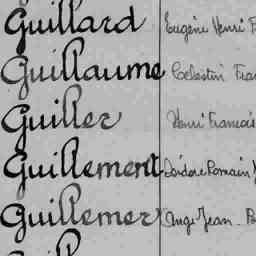 Guillard Eugène Henri
Guillaume Celestin
Guiller Henri Francois
Guillement Isidore Romain
Guillemer Ange Jean